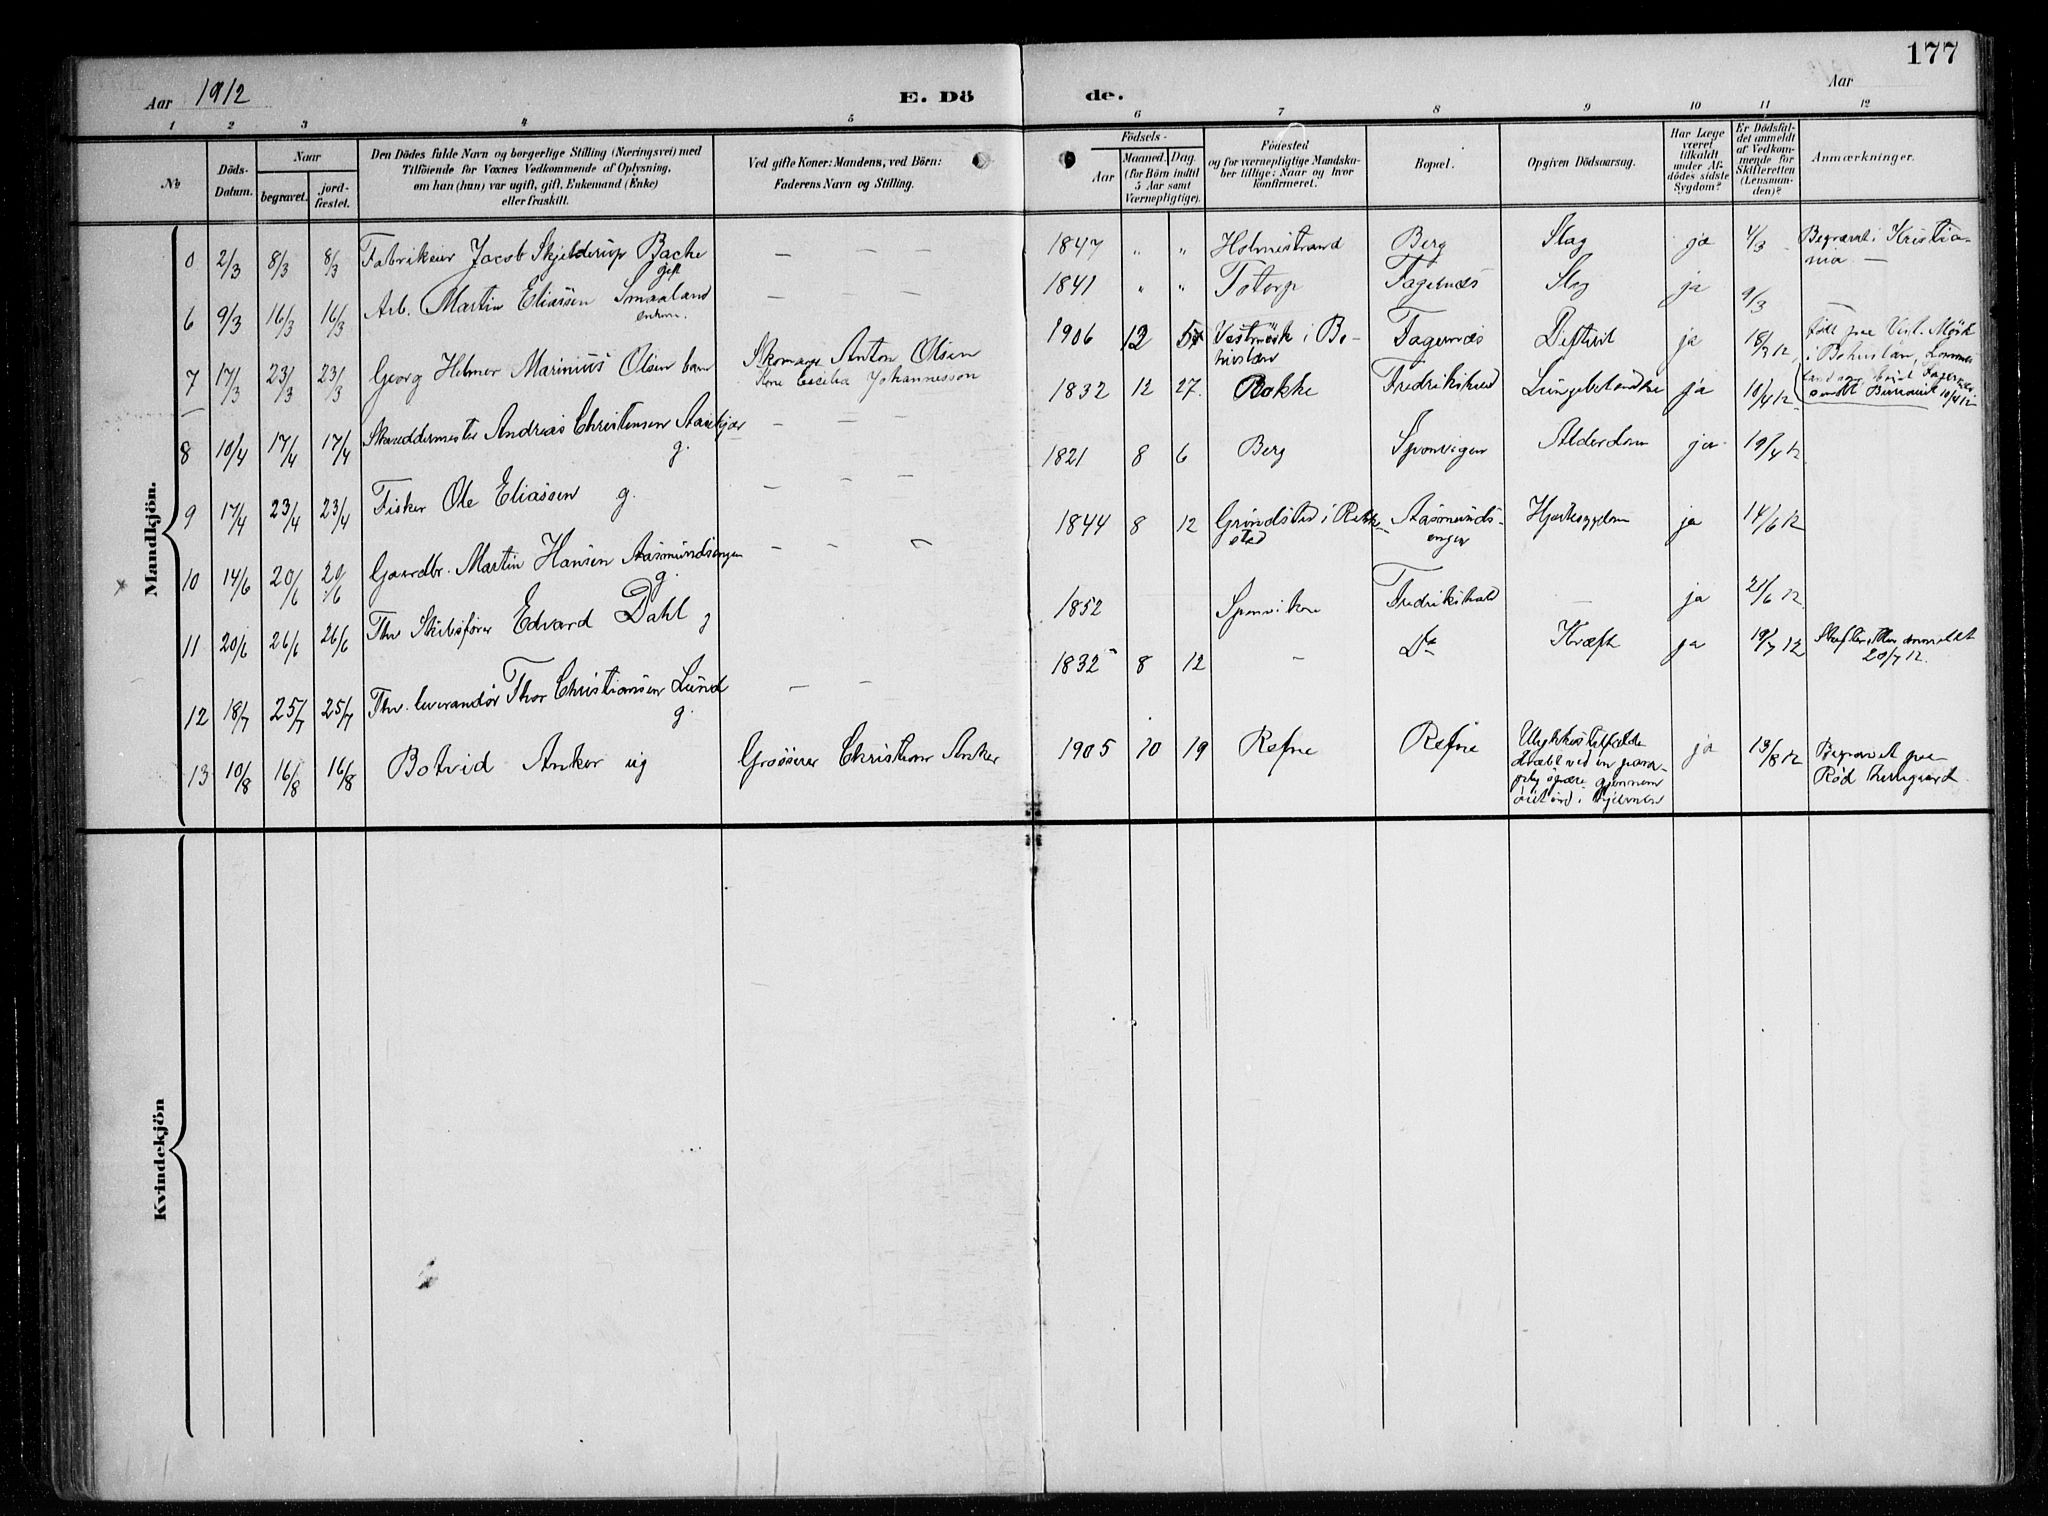 177
Aar 1912 E. Dö de. Aar
1 2 3 4 5 6 7 8 9 10 11 12
No
Döds-Datum.
Naar
begravet.
jord-fæstet.
Den Dödes fulde Navn og borgerlige Stilling (Næringsvei) med
Tilföiende for Voxnes Vedkommende af Oplysning,
om han (hun) var ugift, gift, Enkemand (Enke)
eller fraskilt.
Ved gifte Koner: Mandens, ved Börn:
Faderens Navn og Stilling.
Födsels-
Aar
Maaned. Dag.
(for Börn indtil
5 Aar samt
Værnepligtige).
Födested
og for værnepligtige Mandska-
ber tillige: Naar og hvor
konfirmeret.
Bopæl.
Opgiven Dödsaarsag.
Har Læge
været
tilkaldt
under Af-
dödes sidste
Sygdom?
Er Dödsfal-
det anmeldt
af Vedkom-
mende for
Skifteretten
(Lensman-
den)?
Anmærkninger.
Mandkjön.
0 2/3 8/3 8/3 Fabrikeier Jacob Skjelderup Bache gift — — 1847 " " Holmestrand Berg Slag ja 4/3 Begravet i Kristia-
nia —
6 9/3 16/3 16/3 Arb. Martin Eliassen Smaaland enkem. — — — 1841 " " Torp Fagernæs Slag ja 9/3 —
7 17/3 23/3 23/3 Georg Helmer Marinius Olsen barn Skomager Anton Olsen
Kone Cecilia Johannesson 1906 12 5 Vestmösk i Bo-
huslæn Fagernæs Difterit ja 18/3 12 född paa Vest. Mösk
i Bohuslän,
8 10/4 17/4 17/4 Skræddermester Andreas Christensen g. — — — 1832 12 27 Rokke Fredrikshald Lungebetændelse ja 10/4 12
9 17/4 23/4 23/4 Fisker Ole Eliassen g. — — — 1821 8 6 Berg Sponvigen Alderdom ja 19/4 12
10 14/6 20/6 20/6 Gaardbr. Martin Hansen Aasmundsengen g. — — — 1844 8 12 Grindsted i Rakke-
stad Aasmunds-
engen Hjertesygdom ja 14/6 12
11 20/6 26/6 26/6 Fhv Skibsfører Edvard Dahl g 1852 Sponviken Fredrikshald — ja 21/6 12
12 18/7 25/7 25/7 Fhv. leverandør Thor Christiansen Lund g. — — 1832 8 12 — Do Kræft ja 19/7 12 anmeldt
20/7 12.
13 10/8 16/8 16/8 Botvid Anker ug Grosserer Christian Anker 1905 10 19 Refne Refne Ulykkestilfælde
dræbt ved en para-
ply gjennem
öiet ind i hjernen ja 13/8 12 Begravet paa
Rød Lystgaard.
Kvindekjön